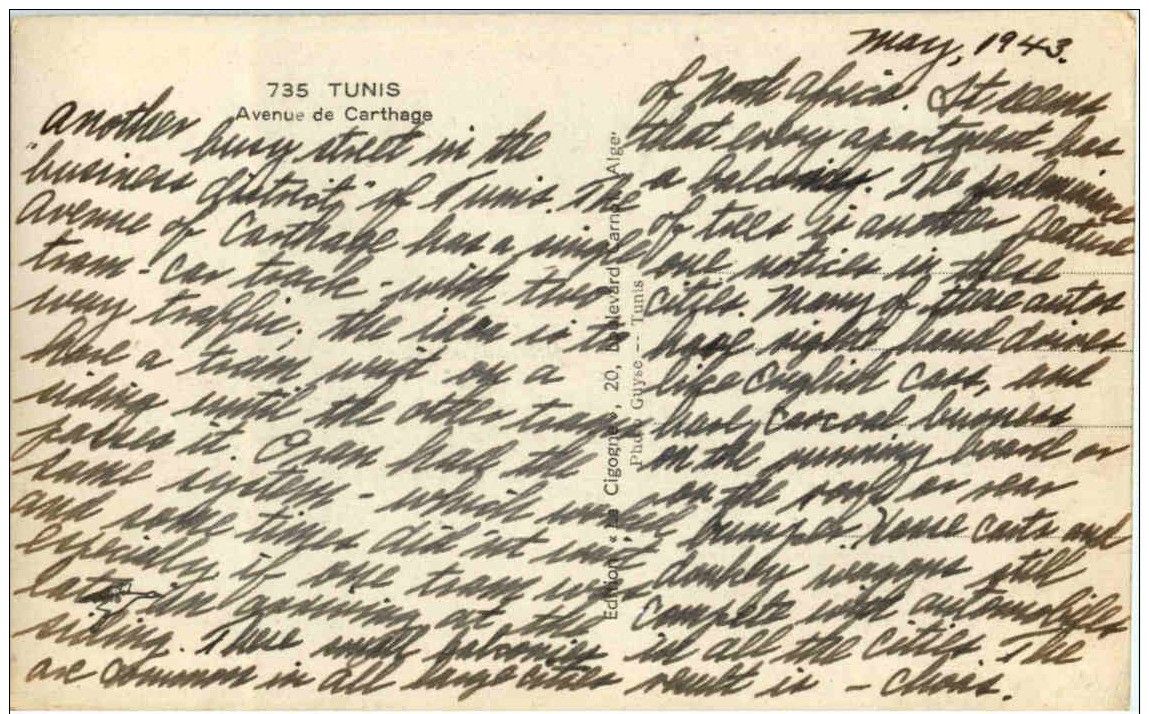 May, 1943.
735 TUNIS
Avenue de Carthage
Another busy street in the
"business district" of Tunis. The
Avenue of Carthage has a single
tram-car track - with two
way traffic; the idea is to
have a tram wait on a
siding until the other tram
passes it. Oran had the
same system - which worked
and some times did'nt work,
especially if one tram was
late in arriving at the
siding. These small balconies
are common in all large cities
of North Africa. It seems
that every apartment has
a balcony. The
of trees is another feature
one notices in these
cities. Many of these autos
have right hand drives
like English cars, and
have carcoal burners
on the running board or
on the roof or rear
bumper. Horse carts and
donkey wagons still
compete with automobiles
in all the cities. The
result is - chois.
Edition « La Cigogne », 20, boulevard Carnot, Alger
Photo Guyse — Tunis